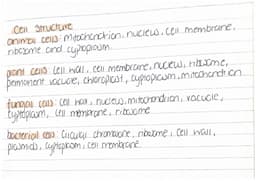 Cell Structure
animal cells: mitochondrion, nucleus, cell membrane,
ribosome and cytoplasm.
plant cells: cell wall, cell membrane, nucleus, ribosome,
permanent vacuole, chloroplast, cytoplasm, mitochondrion
fungal cells: cell wall, nucleus, mitochondrion, vacuole,
cytoplasm, cell membrane, ribosome
bacterial cells: circular chromosome, ribosome, cell wall,
plasmids, cytoplasm, cell membrane.